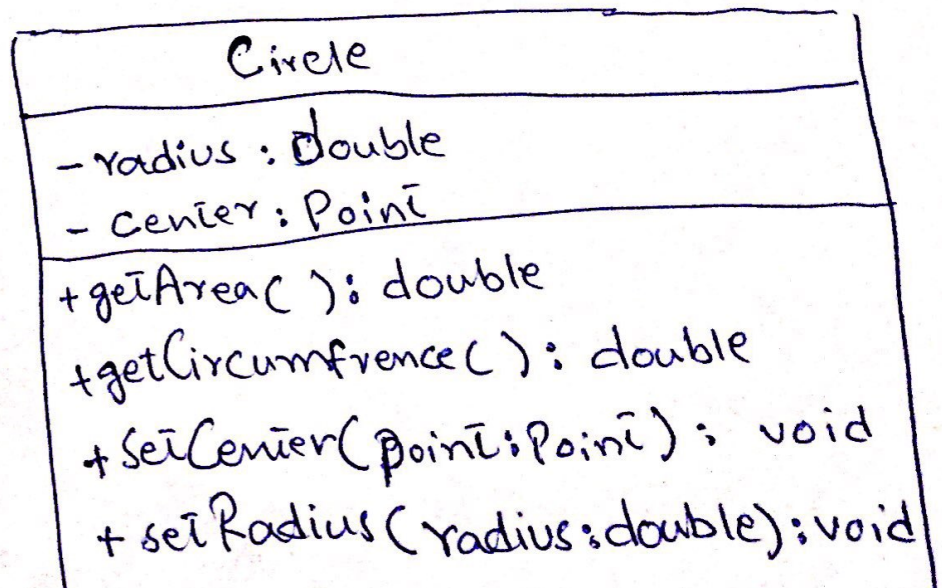 Circle
- radius : double
- center : Point
+ getArea( ) : double
+ getCircumfrence( ) : double
+ setCenter(point : Point) : void
+ setRadius(radius : double) : void